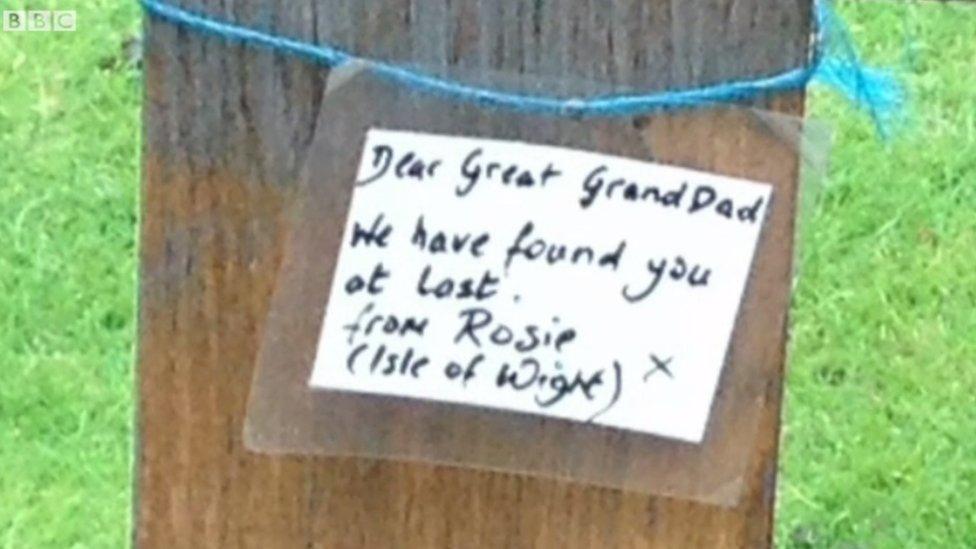 BBC
Dear Great GrandDad
We have found you
at last.
from Rosie
(Isle of Wight) x